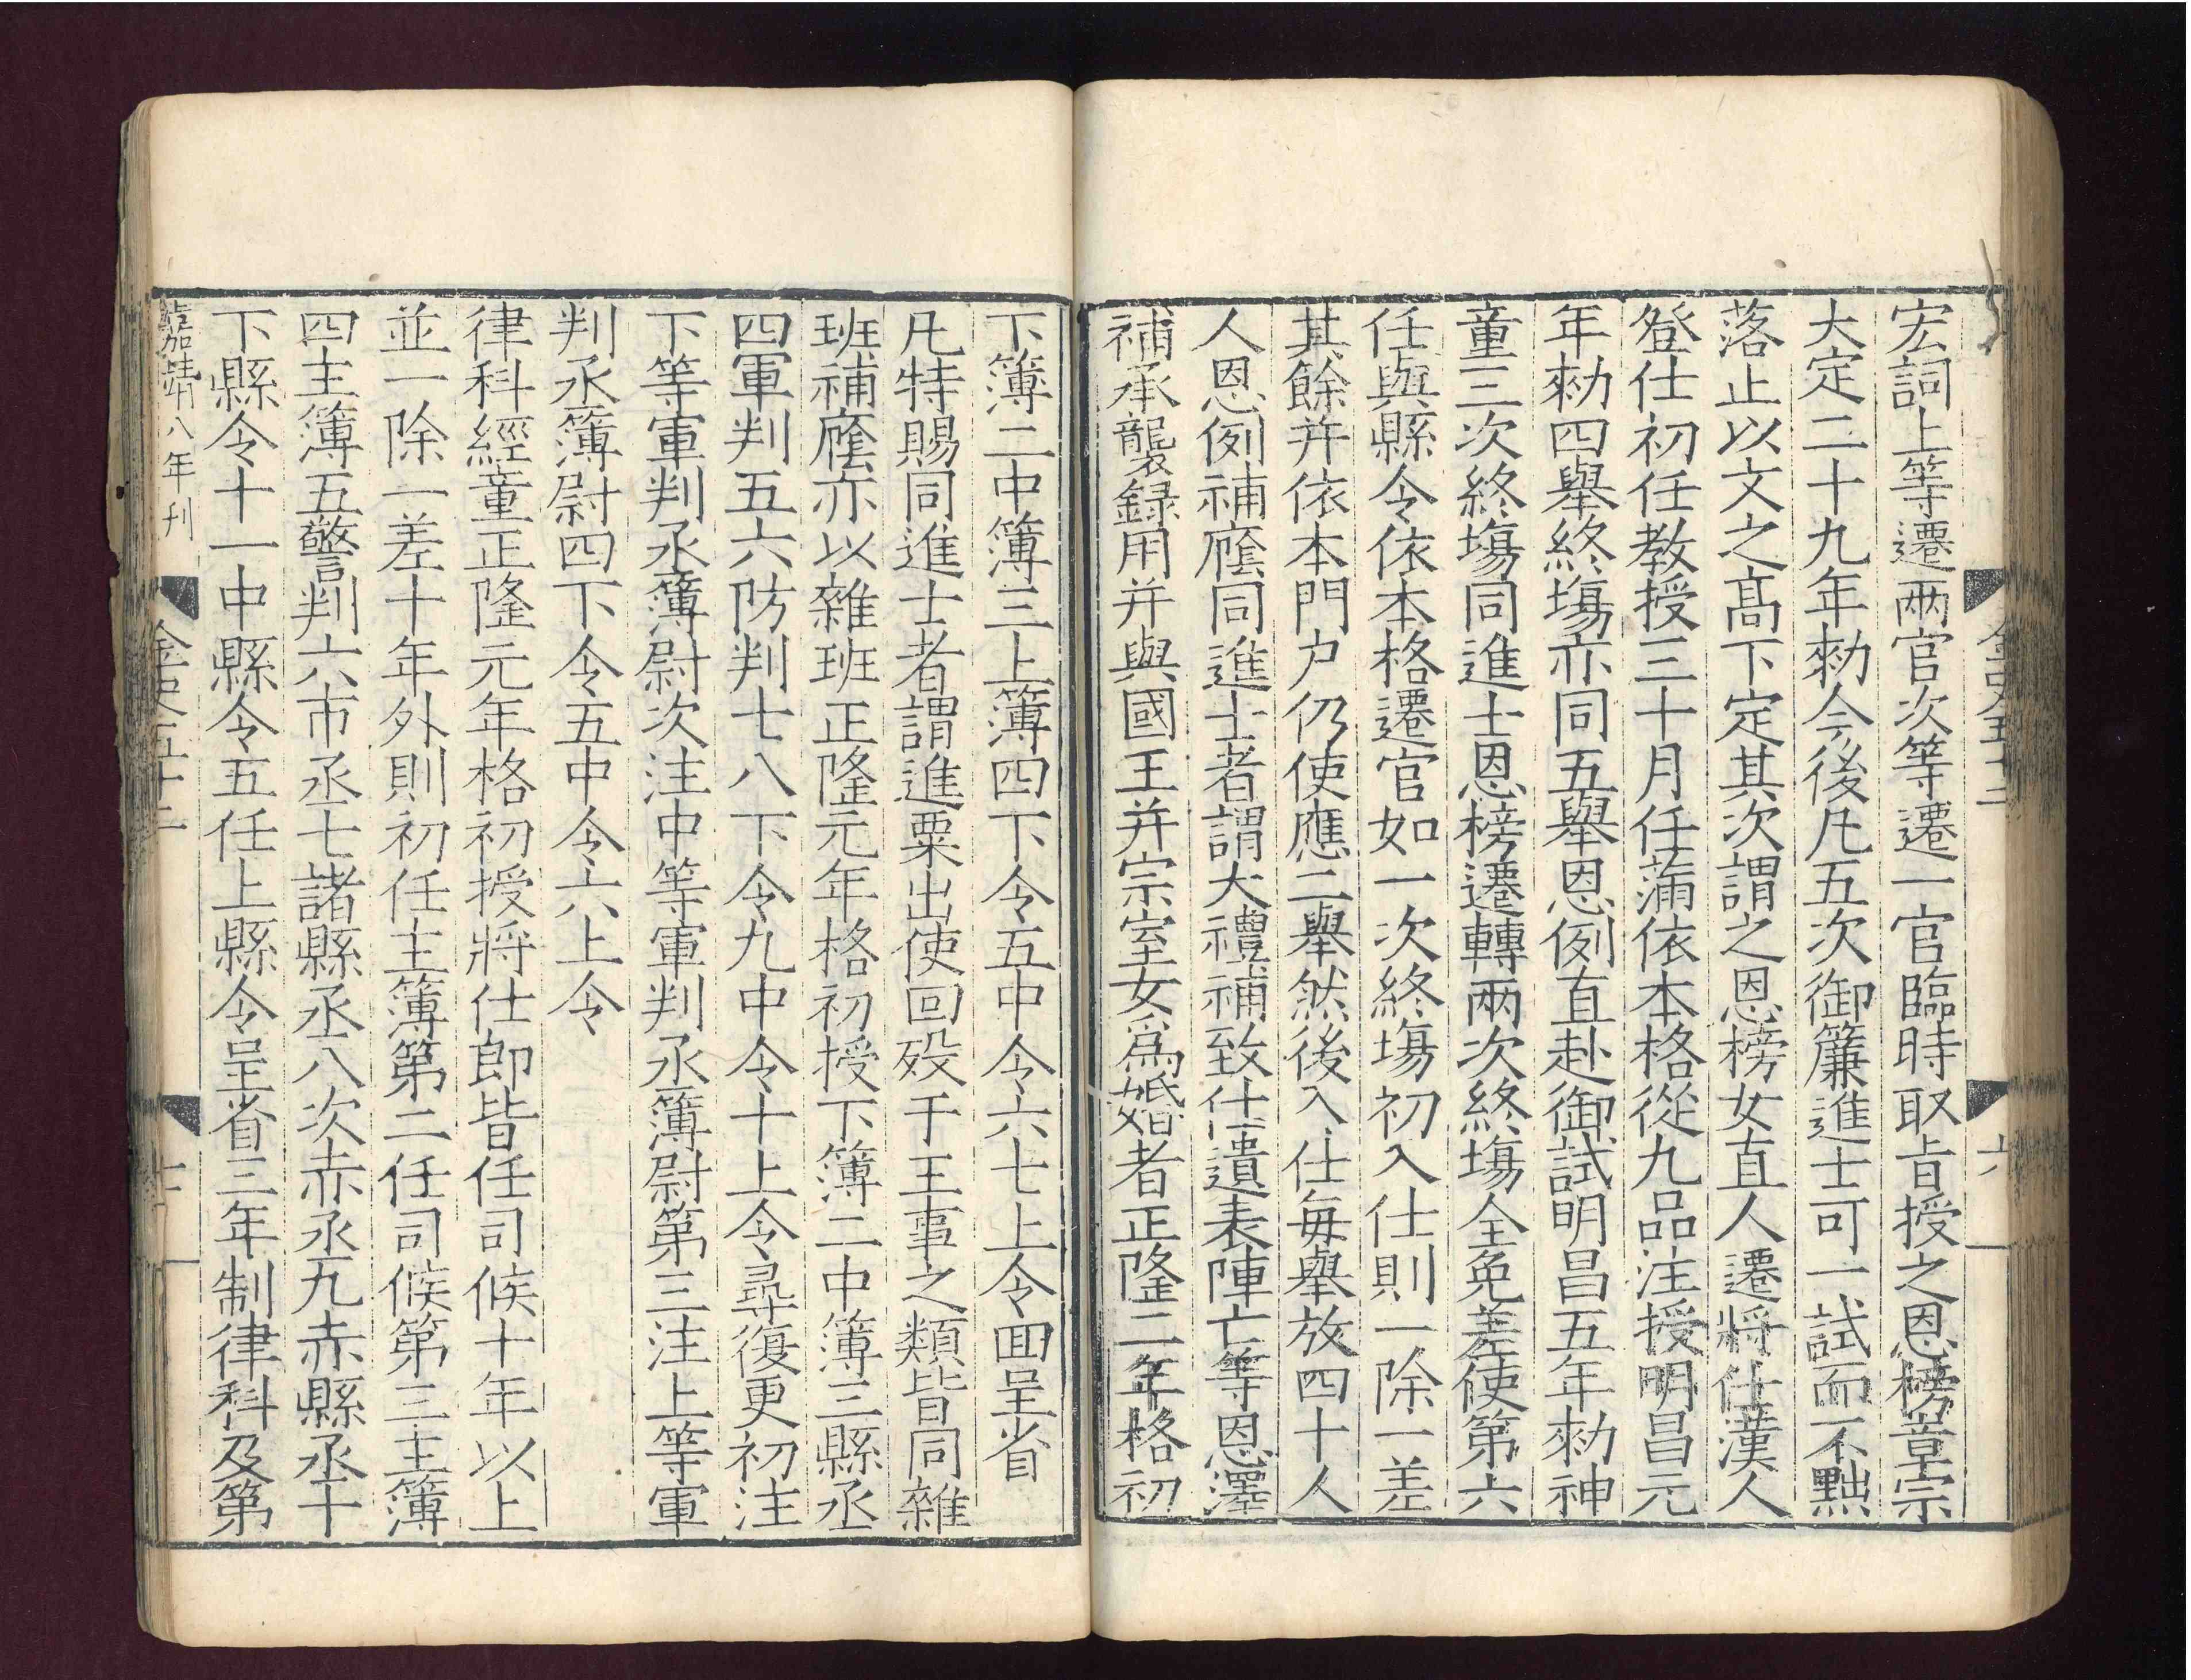 金史五十二
六
宏詞上等遷兩官次等遷一官臨時取旨授之恩榜章宗
大定二十九年勑今後凡五次御簾進士可一試而不黜
落止以文之髙下定其次謂之恩榜女直人遷將仕漢人
登仕初任教授三十月任滿依本格從九品注授明昌元
年勑四舉終塲亦同五舉恩例直赴御試明昌五年勑神
童三次終塲同進士恩榜遷轉兩次終塲全免差使第六
任與縣令依本格遷官如一次終塲初入仕則一除一差
其餘并依本門户仍使應二舉然後入仕每舉放四十人
人恩例補廕同進士者謂大禮補致仕遺表陣亡等恩澤
補承襲録用并與國王并宗室女爲婚者正隆二年格初
下簿二中簿三上簿四下令五中令六七上令囬呈省
凡特賜同進士者謂進粟出使回歿于王事之類皆同雜
班補廕亦以雜班正隆元年格初授下簿二中簿三縣丞
四軍判五六防判七八下令九中令十上令尋復更初注
下等軍判丞簿尉次注中等軍判丞簿尉第三注上等軍
判丞簿尉四下令五中令六上令
律科經童正隆元年格初授將仕郎皆任司候十年以上
並一除一差十年外則初任主簿第二任司候第三主簿
四主簿五警判六市丞七諸縣丞八次赤丞九赤縣丞十
下縣令十一中縣令五任上縣令呈省三年制律科及第
嘉靖八年刊
金史五十二
七